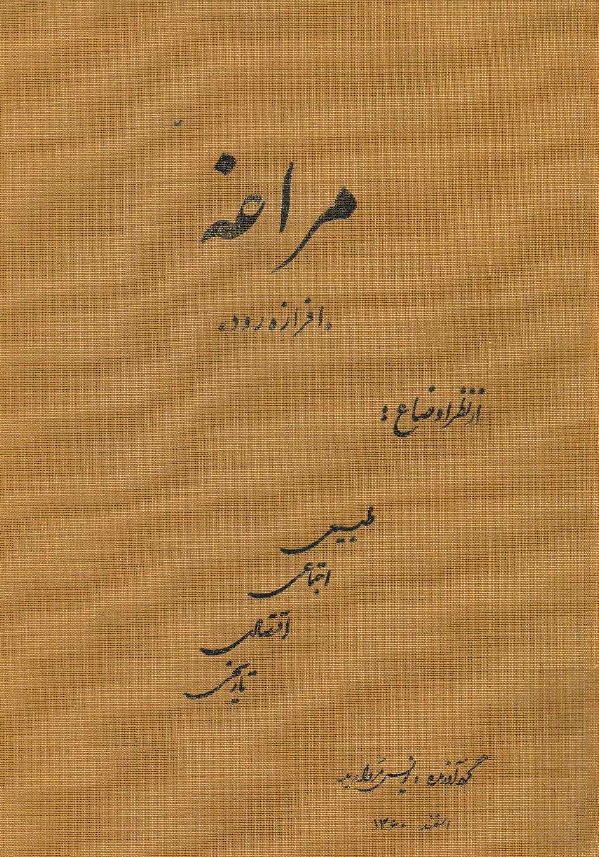 مراغه
«افرازه رود»
از نظر اوضاع :
طبیعی
اجتماعی
اقتصادی
تاریخی
گردآورنده : یونس مروارید
اسفند ۱۳۶۰